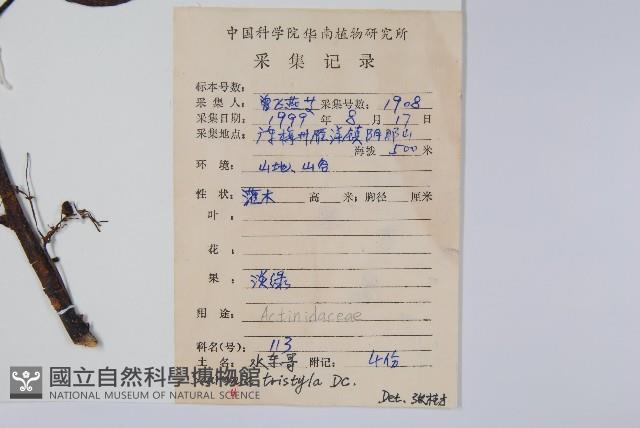 中国科学院华南植物研究所
采集记录
标本号数:
采集人: 曾飞燕 采集号数: 1908
采集日期: 1999 年 8 月 17 日
采集地点: 梅州 镇阴那山
海拔 500 米
环境: 山地、山谷
性状: 灌木 高 米; 胸径 厘米
叶:
花:
果: 淡绿
用途: Actinidaceae
科名(号): 113
土名: 水东哥 附记: 4份
tristyla DC.
Det. 张桂才
國立自然科學博物館
NATIONAL MUSEUM OF NATURAL SCIENCE